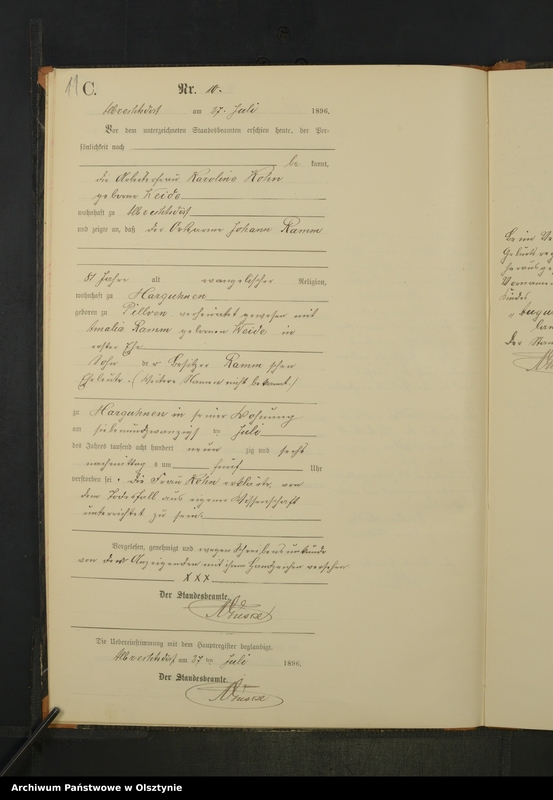 11 C. Nr. 10.
Albrechtsdorf am 27. Juli 1896.
Vor dem unterzeichneten Standesbeamten erschien heute, der Per-
sönlichkeit nach
be kannt,
die Arbeiterfrau Karoline Kohn
geborne Weide
wohnhaft zu Albrechtsdorf
und zeigte an, daß der Ortsarme Johann Ramm
81 Jahre alt evangelischer Religion,
wohnhaft zu Harguhnen
geboren zu Pillwen verheiratet gewesen mit
Amalia Ramm geborenen Weide in
erster Ehe
Sohn der Besitzer Ramm'schen
Eheleute. (Weitere Namen nicht bekannt.)
zu Harguhnen in seiner Wohnung
am siebenundzwanzigsten Juli
des Jahres tausend acht hundert neun zig und sechs
nachmittag s um fünf Uhr
verstorben sei. Die Frau Kohn erklärte, von
dem Todesfall aus eigener Wissenschaft
unterrichtet zu sein.
Vorgelesen, genehmigt und wegen Schreibensunkunde
von der Anzeigenden mit ihrem Handzeichen versehen
X X X
Der Standesbeamte.
Die Uebereinstimmung mit dem Hauptregister beglaubigt.
Albrechtsdorf am 27 ten Juli 1896.
Der Standesbeamte.
Beim
Geburts
Vornamen
Kindes
Der Stan
Archiwum Państwowe w Olsztynie